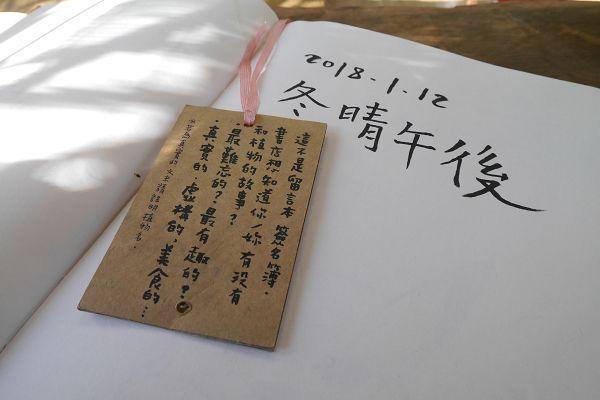 2018.1.12
冬晴午後
這不是留言本 簽名簿.
書店想知道你/妳有沒有
和植物的故事?
·最難忘的? 最有趣的?
·真實的,虛構的,美食的…
※若為真實的文字請註明植物名.